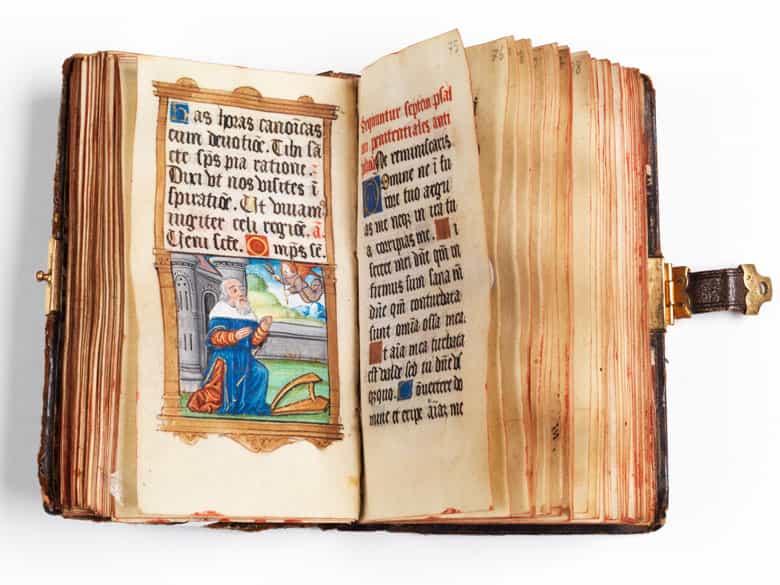 Has horas canoĩcas
cum deuotiõe. Tibi sã
cte sp̃s pia ratione.
Dixi vt nos visites ĩ
spiratiõe. Et viuamꝰ
iugiter celi regiõe. a
Veni scẽ. Omp̃s sẽ.
75
Sequuntur septem psal
mi penitentiales anti
Ne reminiscaris
Domine ne ĩ fu
rore tuo argu
as me neqꝫ in ira tu
a corripias me. Mi
serere mei dñe qm̃ in
firmus sum sana m̃
dñe qm̃ conturbata
sunt om̃ia ossa mea.
Et aĩa mea turbata
est valde sed tu dñe vs
qꝫquo. Cõuertere do
mine et eripe aĩaꝫ me
76